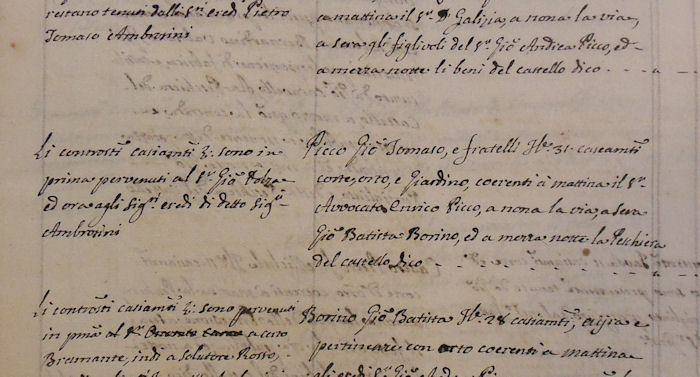 restano tenuti dalli Sri eredi Pietro
Tomaso Ambrosini
a mattina il Sr. Galizia, a nona la via,
a sera gli figlivoli del Sr. Gio Andrea Picco, ed
a mezza notte li beni del castello dico
Li controsti casiamti &. sono in
prima pervenuti al Sr. Gio
ed ora agli Sigri eredi di detto Sigr
Ambrosini
Picco Gio Tomaso, e fratelli No. 31. caseamti
corte, orto, e Giardino, coerenti à mattina il Sr.
Avvocato Enrico Picco, a nona la via, a sera
Gio Batista Borino, ed a mezza notte la Peschiera
del castello dico
Li controsti casiamti &. sono pervenuti
in pma al Sr. a caro
Bramante, indi a Solutore Rosso,
Borino Gio Batista No. 28 casiamti, ayra e
pertinenze con orto coerenti a mattina
gli eredi